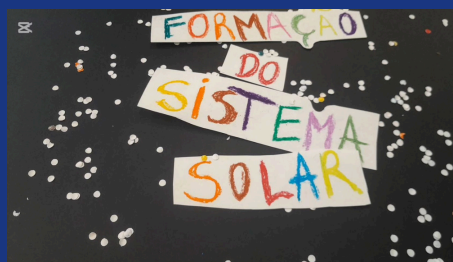 FORMAÇAO
DO
SISTEMA
SOLAR